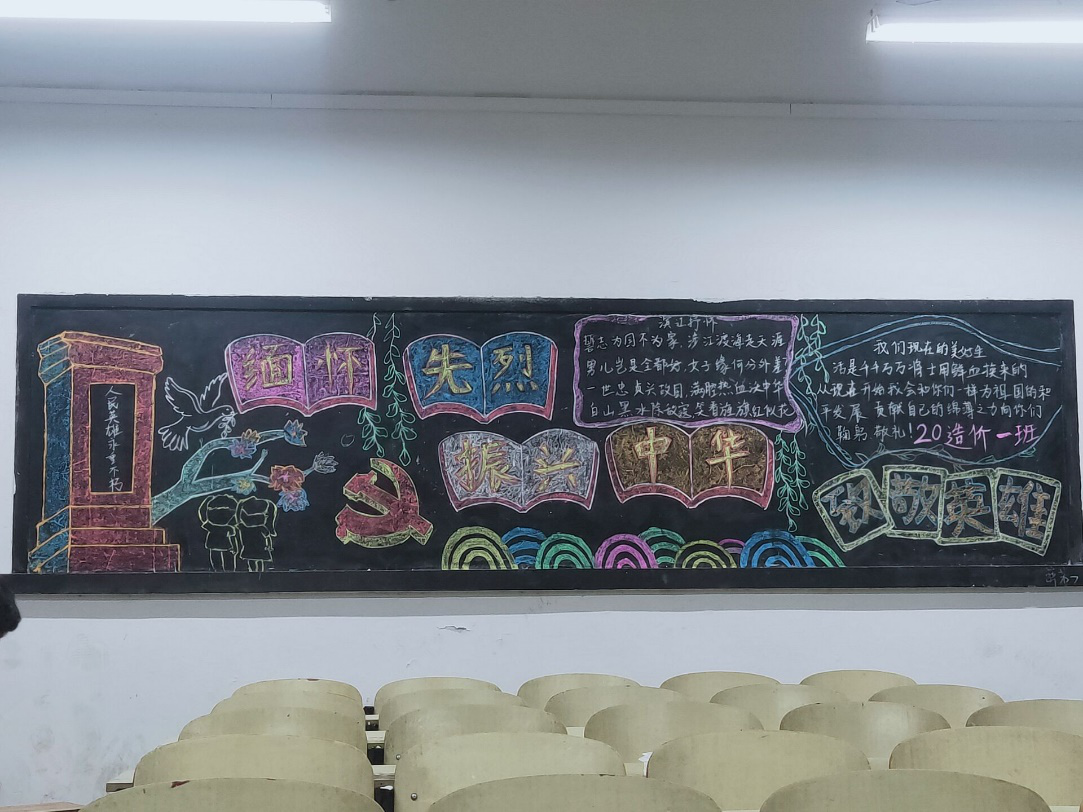 人民英雄永垂不朽
缅怀
先烈
振兴
中华
誓志为国不为家,涉江渡海走天涯
男儿岂是全都好,女子缘何分外差
一世忠贞兴故国,满腔热血沃中华
白山黑水除敌寇,笑看旌旗红似花
我们现在的美好生
活是千千万万将士用鲜血换来的
从现在开始我会和你们一样为祖国的和
平发展贡献自己的绵薄之力向你们
鞠躬 敬礼!20造价一班
致敬英雄